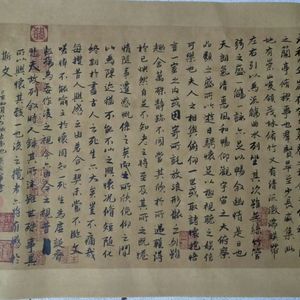 之蘭亭脩稧事也羣賢畢至少長咸集此
地有崇山峻領茂林脩竹又有清流激湍暎帶
左右引以為流觴曲水列坐其次雖無絲竹管
弦之盛一觴一詠亦足以暢叙幽情是日也
天朗氣清惠風和暢仰觀宇宙之大俯察
品類之盛所以遊目騁懷足以極視聽之娛信
可樂也夫人之相與俯仰一世或取諸懷抱悟
言一室之內或因寄所託放浪形骸之外雖
趣舍萬殊靜躁不同當其欣於所遇蹔得
於己快然自足不知老之將至及其所之既惓
情隨事遷感慨係之矣向之所欣俛仰之間
以為陳迹猶不能不以之興懷況脩短隨化
終期於盡古人云死生亦大矣豈不痛哉
每攬昔人興感之由若合一契未嘗不臨文
嗟悼不能喻之於懷固知一死生為虛誕齊
彭殤為妄作後之視今亦由今之視昔
悲夫故列叙時人錄其所述雖世殊事異
所以興懷其致一也後之攬者亦將有感於
斯文